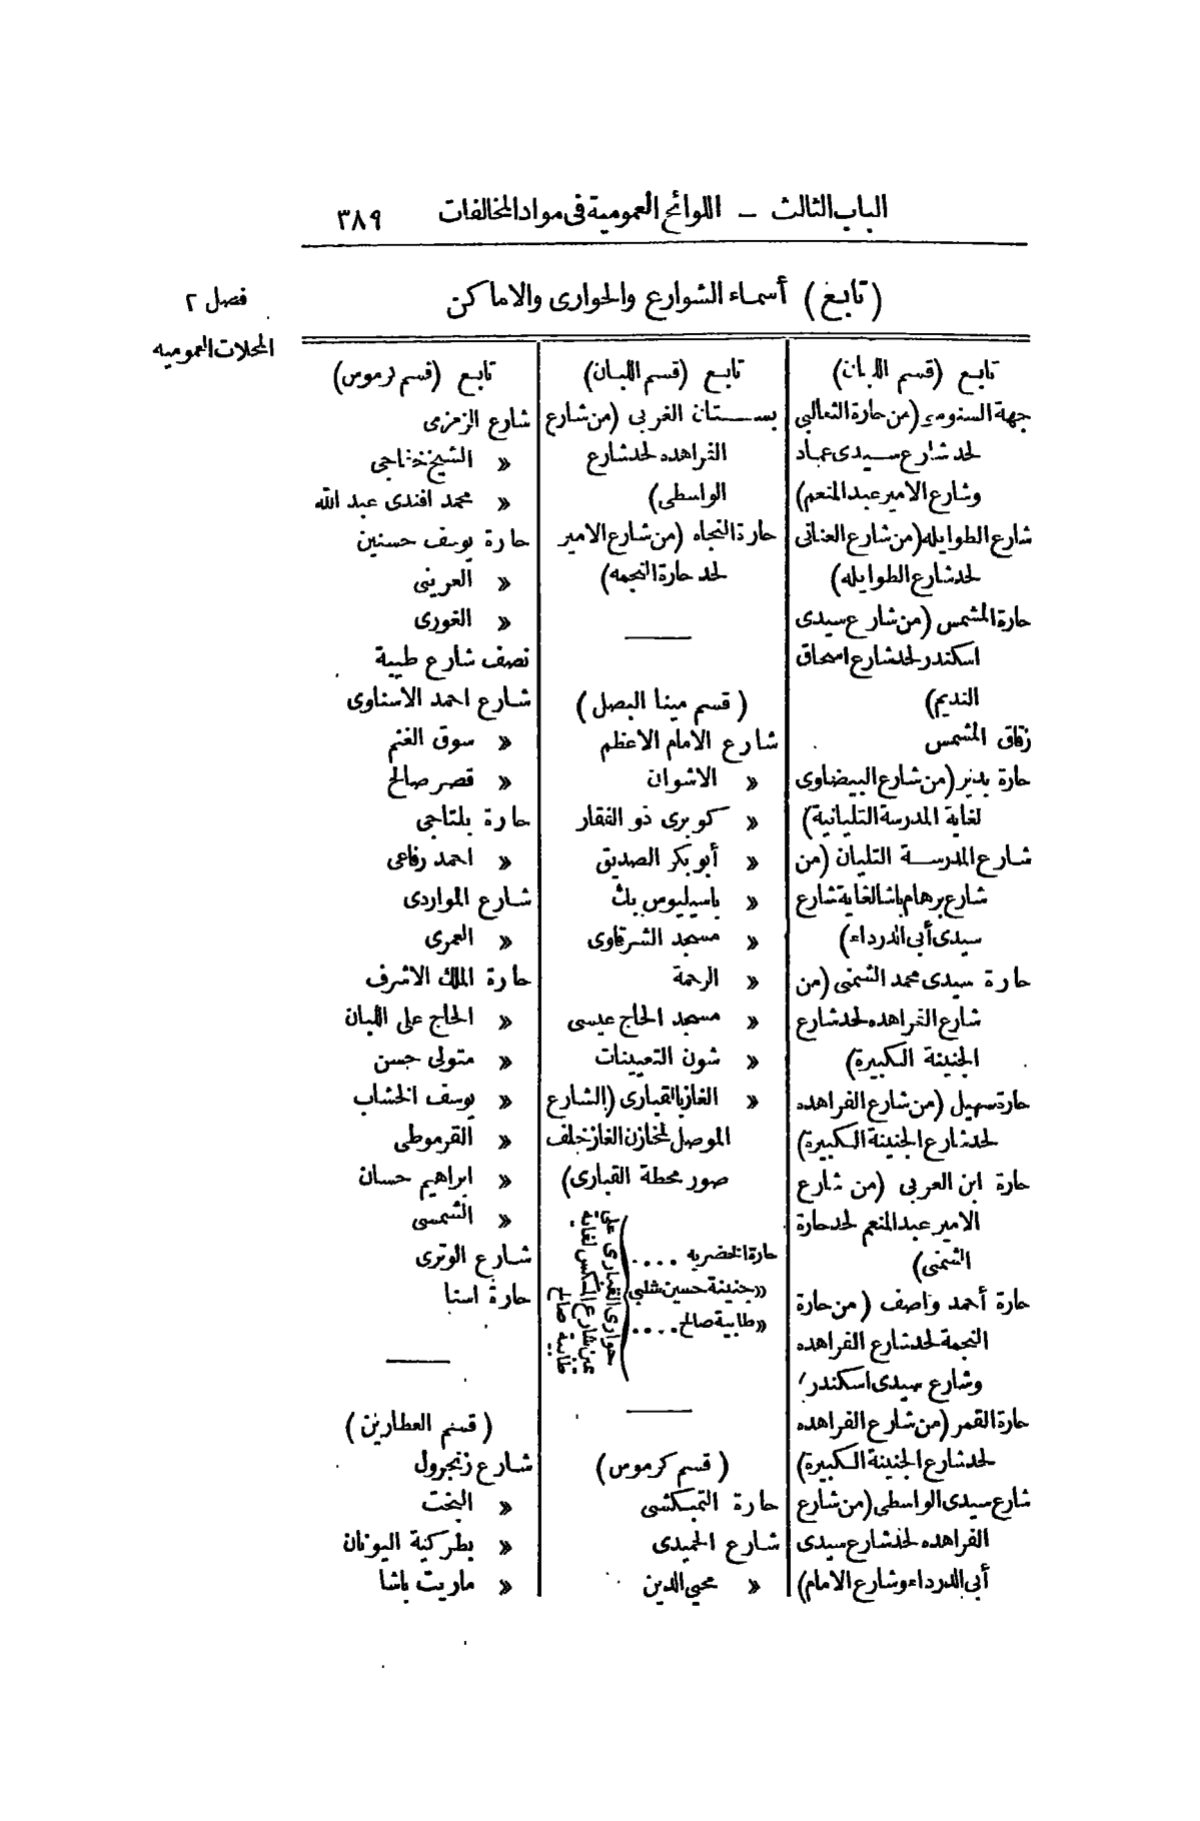 الباب الثالث — اللوائح العمومية فى مواد المخالفات ٣٨٩
فصل ٢
المحلات العموميه
(تابع) أسماء الشوارع والحوارى والاماكن
تابع (قسم اللبان)
جهة السنوسى (من حارة الثعالبى
لحد شارع سيدى عماد
وشارع الامير عبد المنعم)
شارع الطوايله (من شارع العنانى
لحد شارع الطوايله)
حارة المشمس (من شارع سيدى
اسكندر لحد شارع اسحاق
النديم)
زقاق المشمس
حارة بدير (من شارع البيضاوى
لغاية المدرسة التليانية)
شارع المدرسة التليان (من
شارع برهام باشا لغاية شارع
سيدى أبى الدرداء)
حارة سيدى محمد الشمنى (من
شارع الفراهده لحد شارع
الجنينة الكبيرة)
حارة سهيل (من شارع الفراهده
لحد شارع الجنينة الكبيرة)
حارة ابن العربى (من شارع
الامير عبد المنعم لحد حارة
الشمنى)
حارة أحمد واصف (من حارة
النجمة لحد شارع الفراهده
وشارع سيدى اسكندر)
حارة القمر (من شارع الفراهده
لحد شارع الجنينة الكبيرة)
شارع سيدى الواسطى (من شارع
الفراهده لحد شارع سيدى
أبى الدرداء وشارع الامام)
تابع (قسم اللبان)
بستان الغربى (من شارع
الفراهده لحد شارع
الواسطى)
حارة النجاه (من شارع الامير
لحد حارة النجمه)
(قسم مينا البصل)
شارع الامام الاعظم
« الاشوان
« كوبرى ذو الفقار
« أبو بكر الصديق
« باسيليوس بك
« مسجد الشرقاوى
« الرحمة
« مسجد الحاج عيسى
« شون التعيينات
« الغاز بالقبارى (الشارع
الموصل لمخازن الغاز خلف
صور محطة القبارى)
حارة الخضريه ....
« جنينة حسين شلبى
« طابية صالح ....
حوارى القبارى على
عين شارع المكس لغاية
طابية صالح
(قسم كرموس)
حارة التمبكشى
شارع الحميدى
« محيى الدين
تابع (قسم كرموس)
شارع الزمزمى
« الشيخ خفاجى
« محمد افندى عبد الله
حارة يوسف حسنين
« العرينى
« الغورى
نصف شارع طيبة
شارع احمد الاسناوى
« سوق الغنم
« قصر صالح
حارة بلتاجى
« احمد رفاعى
شارع المواردى
« العمرى
حارة الملك الاشرف
« الحاج على اللبان
« متولى حسن
« يوسف الخشاب
« القرموطى
« ابراهيم حسان
« الشمسى
شارع الوترى
حارة اسنا
(قسم العطارين)
شارع زنجرول
« البخت
« بطركية اليونان
« ماريت باشا